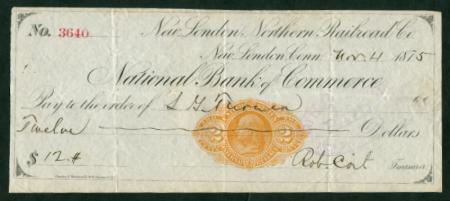 No. 3640
New London Northern Railroad Co
New London Conn. Nov. 4 1875
National Bank of Commerce
Pay to the order of S G
Twelve Dollars
$ 12.#
Rob. Coit Treasurer